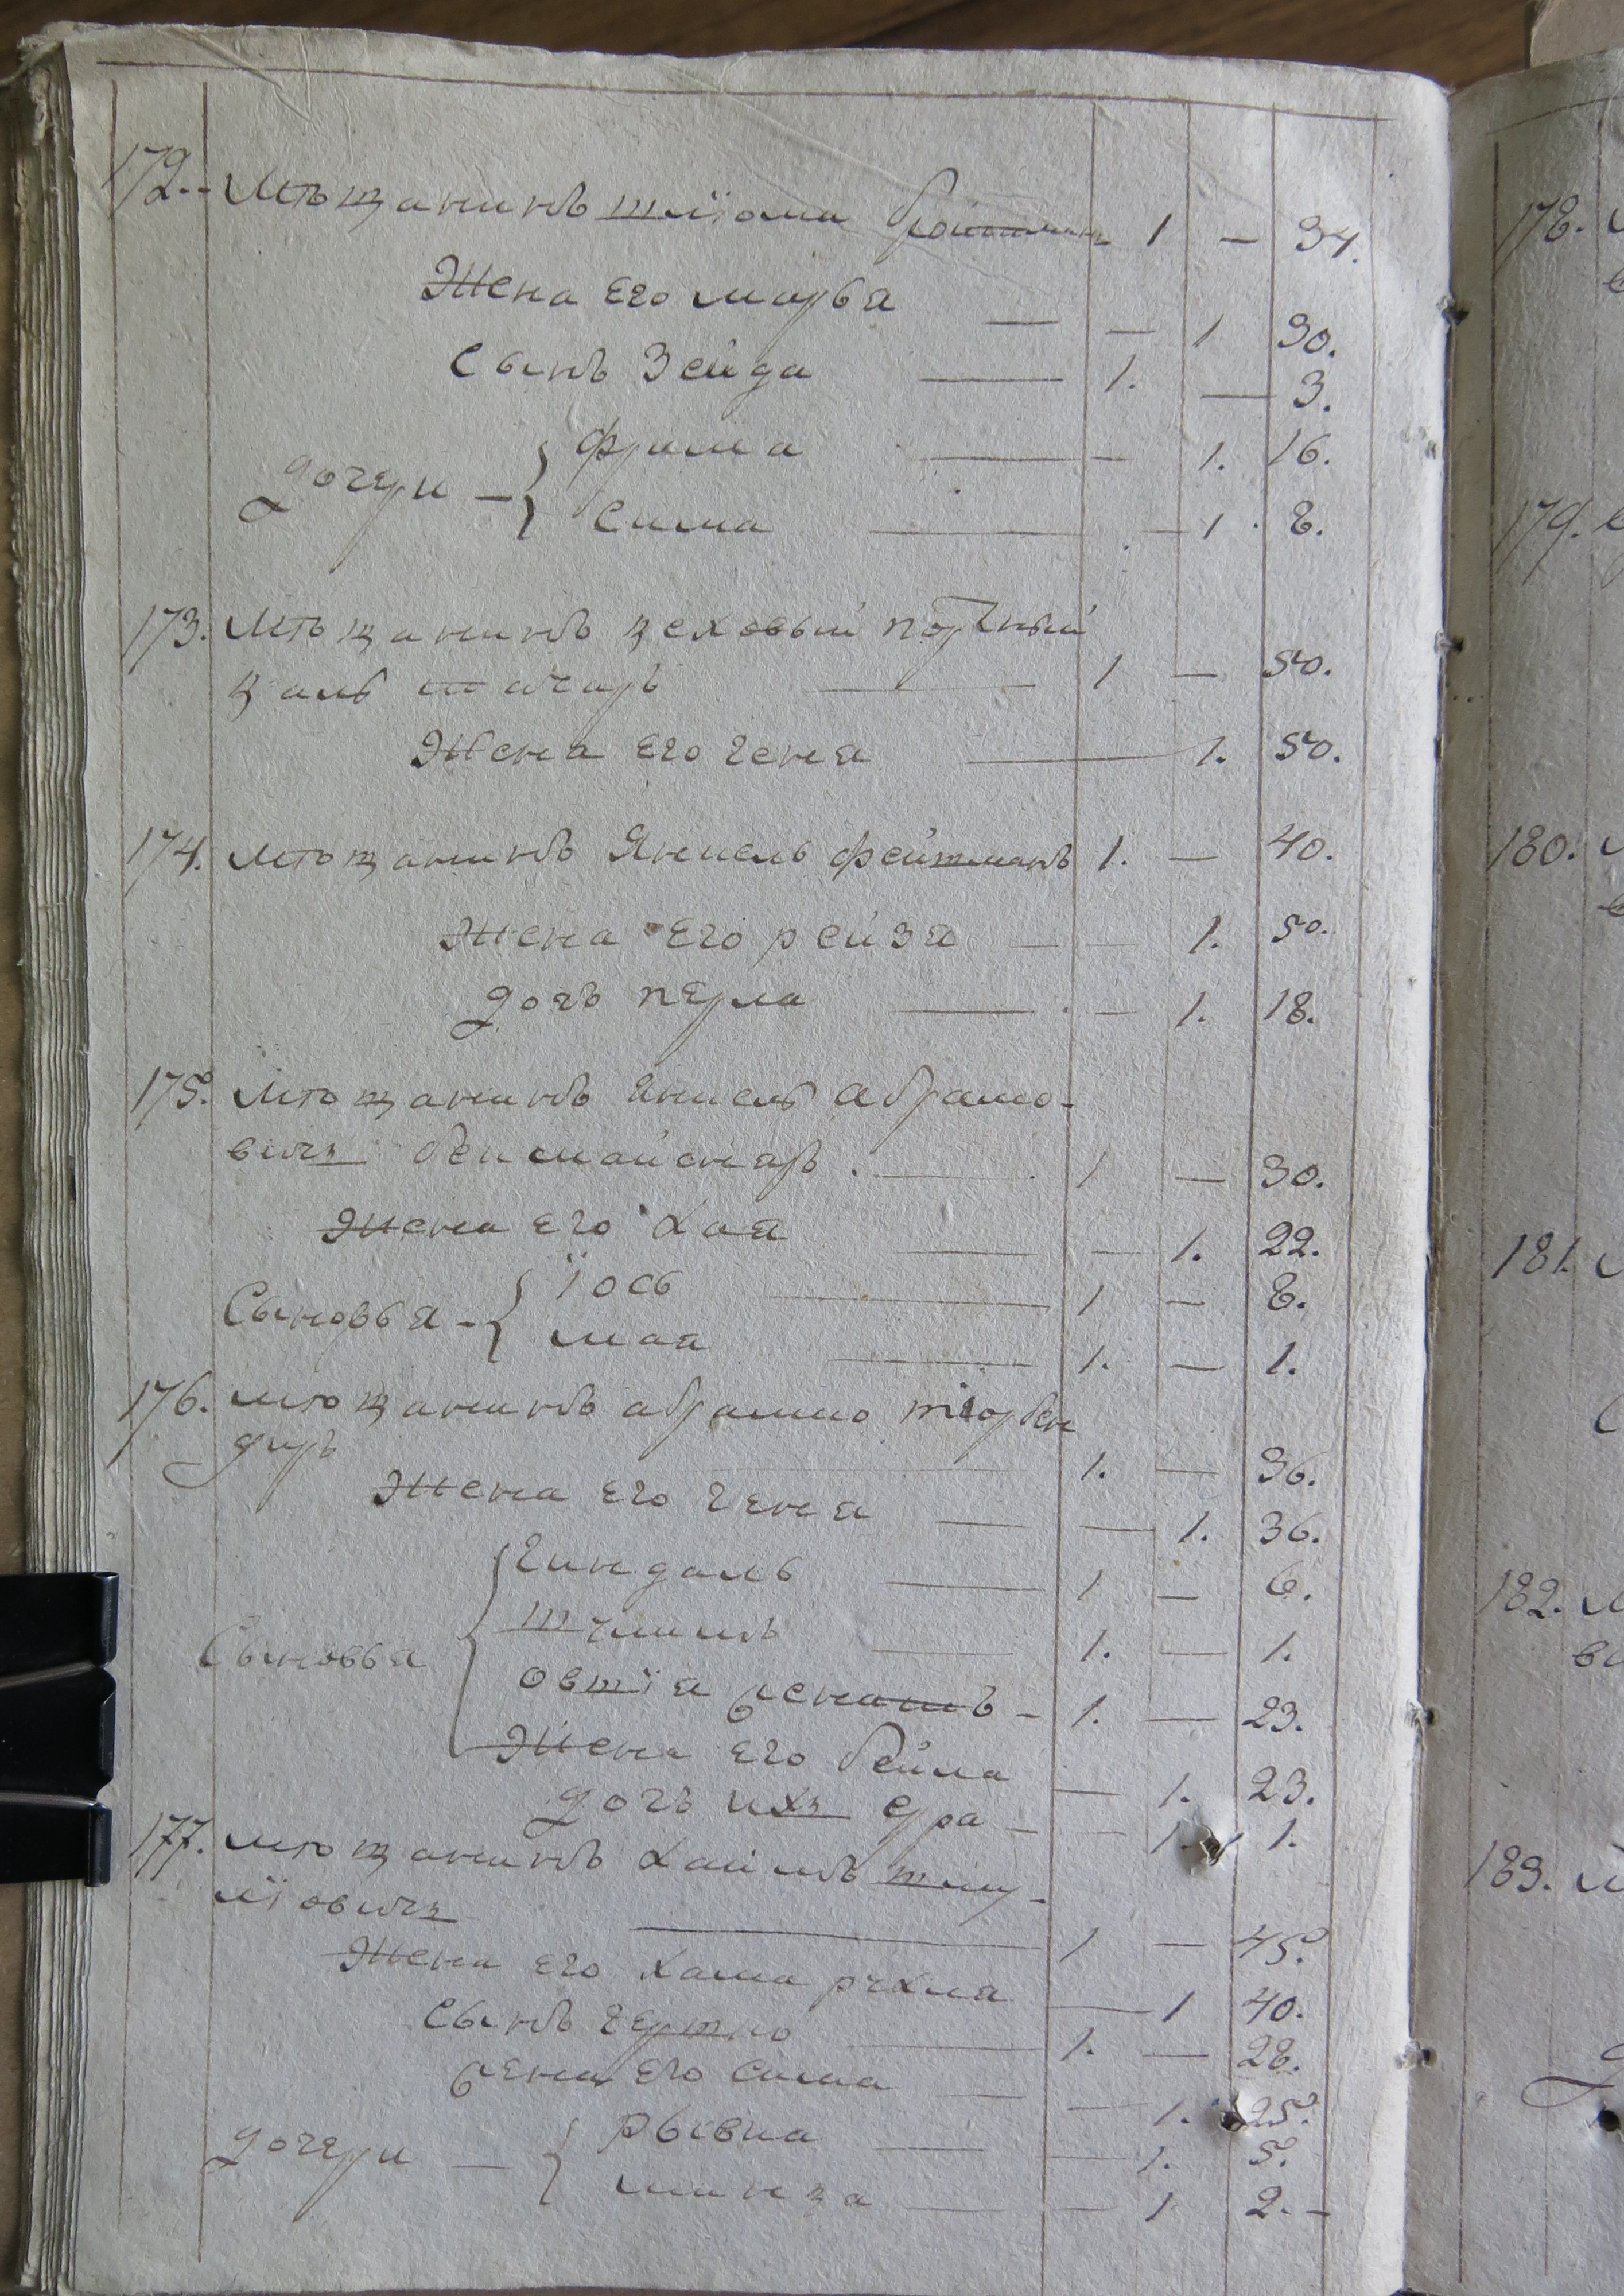 172. Мѣщанинъ шліома бро 1 — 34.
Жена Его марья — — 1 30.
Сынъ Зейда — 1. — 3.
дочери — { фрима — — 1. 16.
Сима — — 1. 8.
173. Мѣщанинъ цеховый портный
цаль — 1 — 50.
Жена Его геня — 1. 50.
174. Мѣщанинъ Янкель фейтманъ 1. — 40.
Жена Его рейзя — — 1. 50.
дочь перла — — 1. 18.
175. Мѣщанинъ Янкель Абрамо-
вичъ — 1 — 30.
Жена Его Хая — — 1. 22.
Сыновья — { Їось — 1 — 8.
мая — 1. — 1.
176. Мѣщанинъ абрамко
диръ — 1. — 36.
Жена Его геня — — 1. 36.
гиндаль — 1 — 6.
1. — 1.
Сыновья { овшїя — 1. — 23.
Жена Его бейла — 1. 23.
дочь ихъ — — 1. 1.
177. Мѣщанинъ Хаимъ шму-
лїовичъ — 1 — 45.
Жена Его Хана рухля — 1 40.
Сынъ гершко — 1. — 28.
жена Его сима — — 1. 25.
дочери — { рывка — — 1. 5.
— — 1 2. —
178.
179.
180.
181.
182.
183.